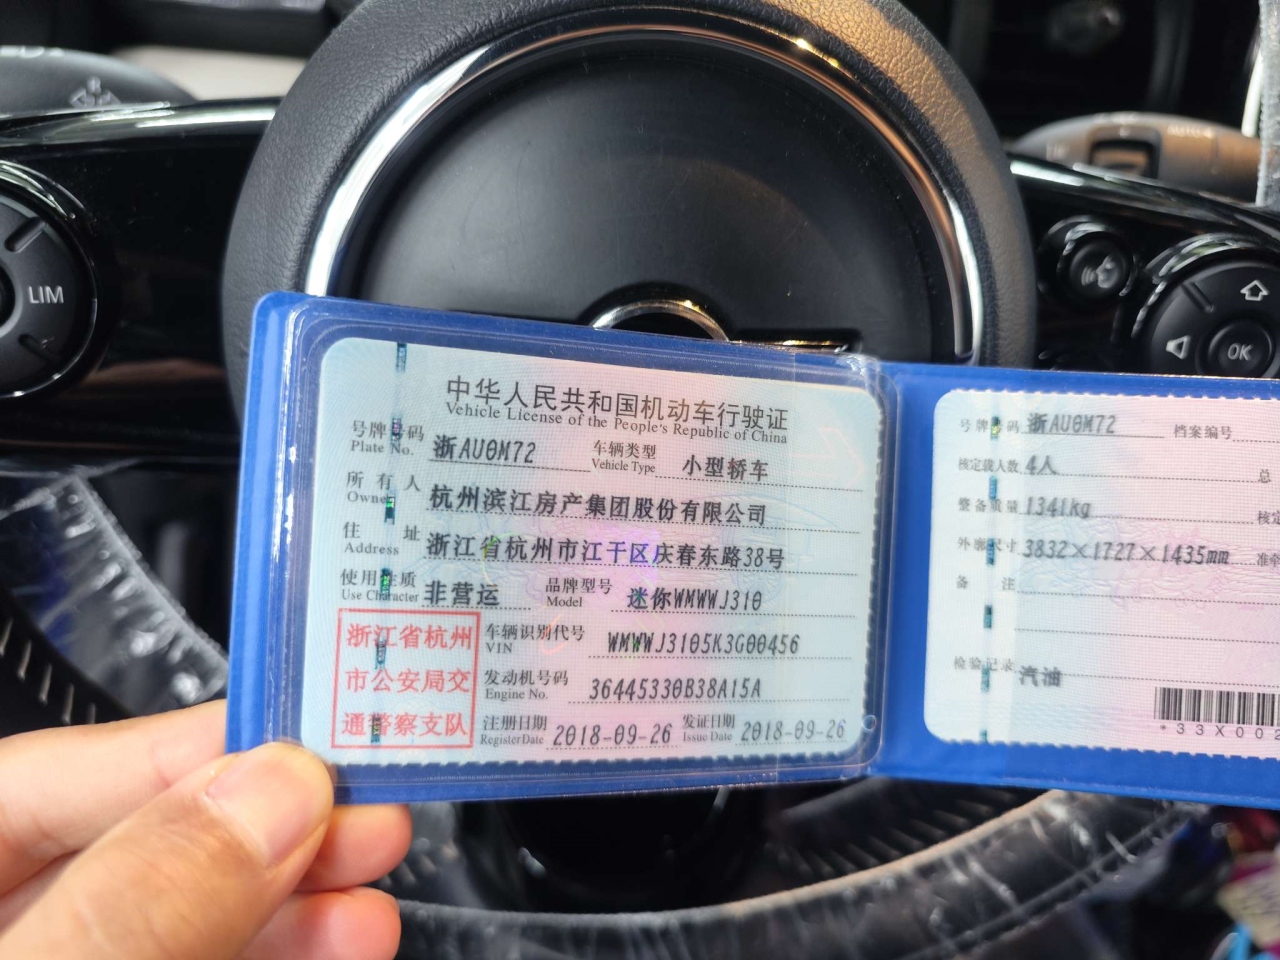 LIM
OK
中华人民共和国机动车行驶证
Vehicle License of the People's Republic of China
号牌号码 浙AU0M72 车辆类型 小型轿车
Plate No. Vehicle Type
所有人 杭州滨江房产集团股份有限公司
Owner
住址 浙江省杭州市江干区庆春东路38号
Address
使用性质 非营运 品牌型号 迷你WMWWJ310
Use Character Model
浙江省杭州
市公安局交
通警察支队
车辆识别代号 WMWWJ3105K3G00456
VIN
发动机号码 36445330B38A15A
Engine No.
注册日期 2018-09-26 发证日期 2018-09-26
Register Date Issue Date
号牌号码 浙AU0M72 档案编号
核定载人数 4人 总
整备质量 1341kg 核定
外廓尺寸 3832×1727×1435mm 准牵
备注
检验记录 汽油
*33X002